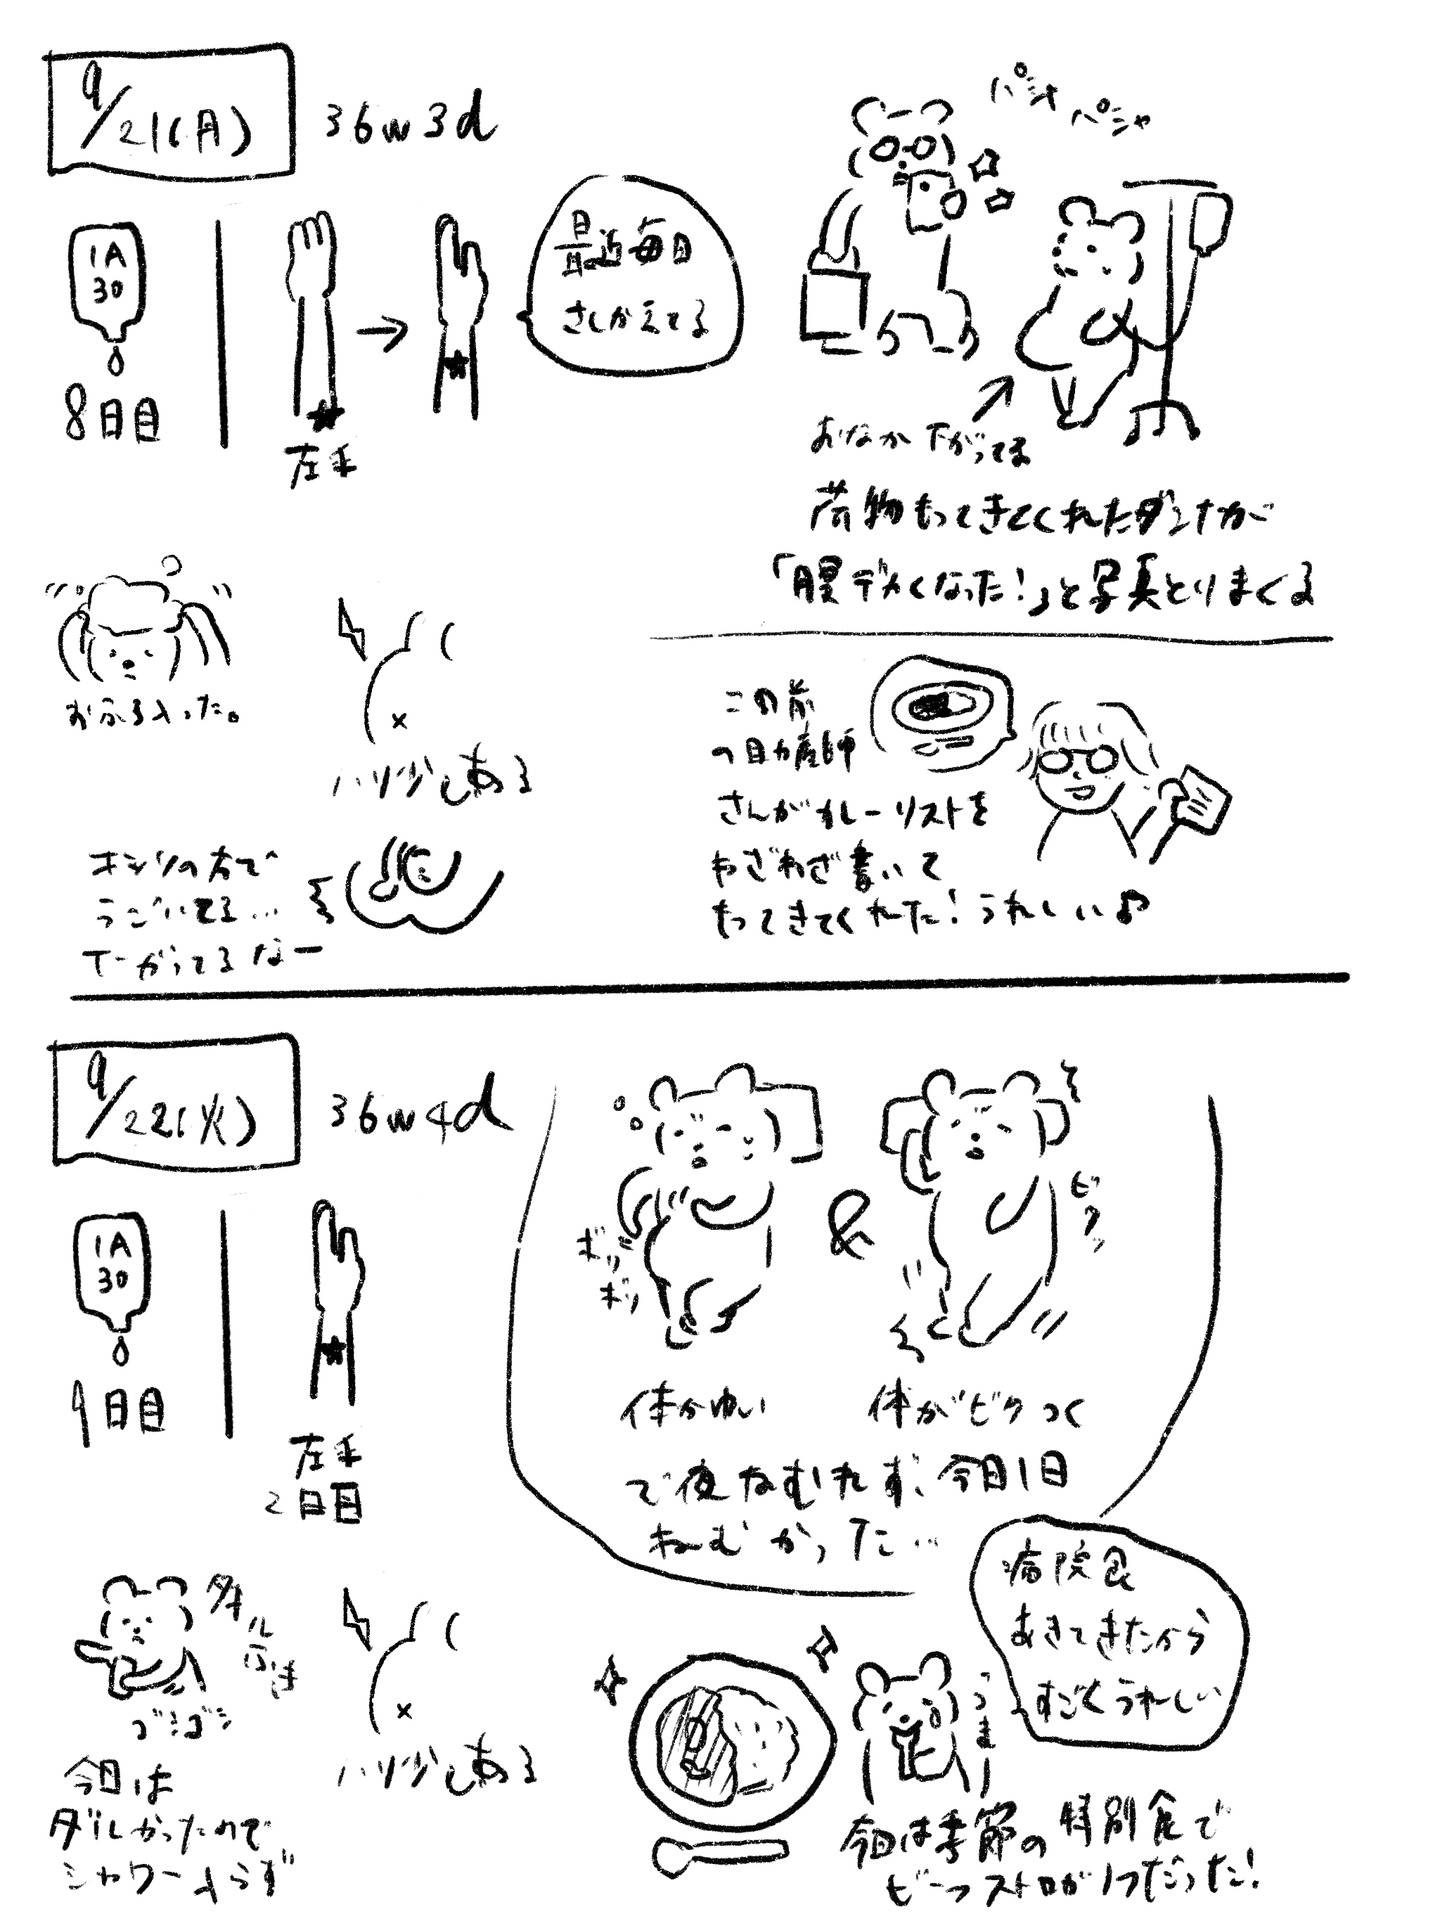 9/21(月)
36w3d
1A
30
8日目
左手
最近毎日
さしかえてる
パシャ
パシャ
おなか下がってる
荷物もってきてくれたダンナが
「腹デカくなった!」と写真とりまくる
おふろ入った。
ハリ少しある
この前
の助産師
さんがカレーリストを
わざわざ書いて
もってきてくれた!うれしい♪
オシリの方で
うごいてる…
下がってるなー
9/22(火)
36w4d
1A
30
9日目
左手
2日目
ボリ
ボリ
&
ビクッ
体かゆい
体がビクつく
で夜ねむれず、今日1日
ねむかった…
病院食
あきてきたから
すごくうれしい
タオル
ふき
ゴシゴシ
今日は
ダルかったので
シャワー入らず
ハリ少しある
うま
今日は季節の特別食で
ビーフストロガノフだった!